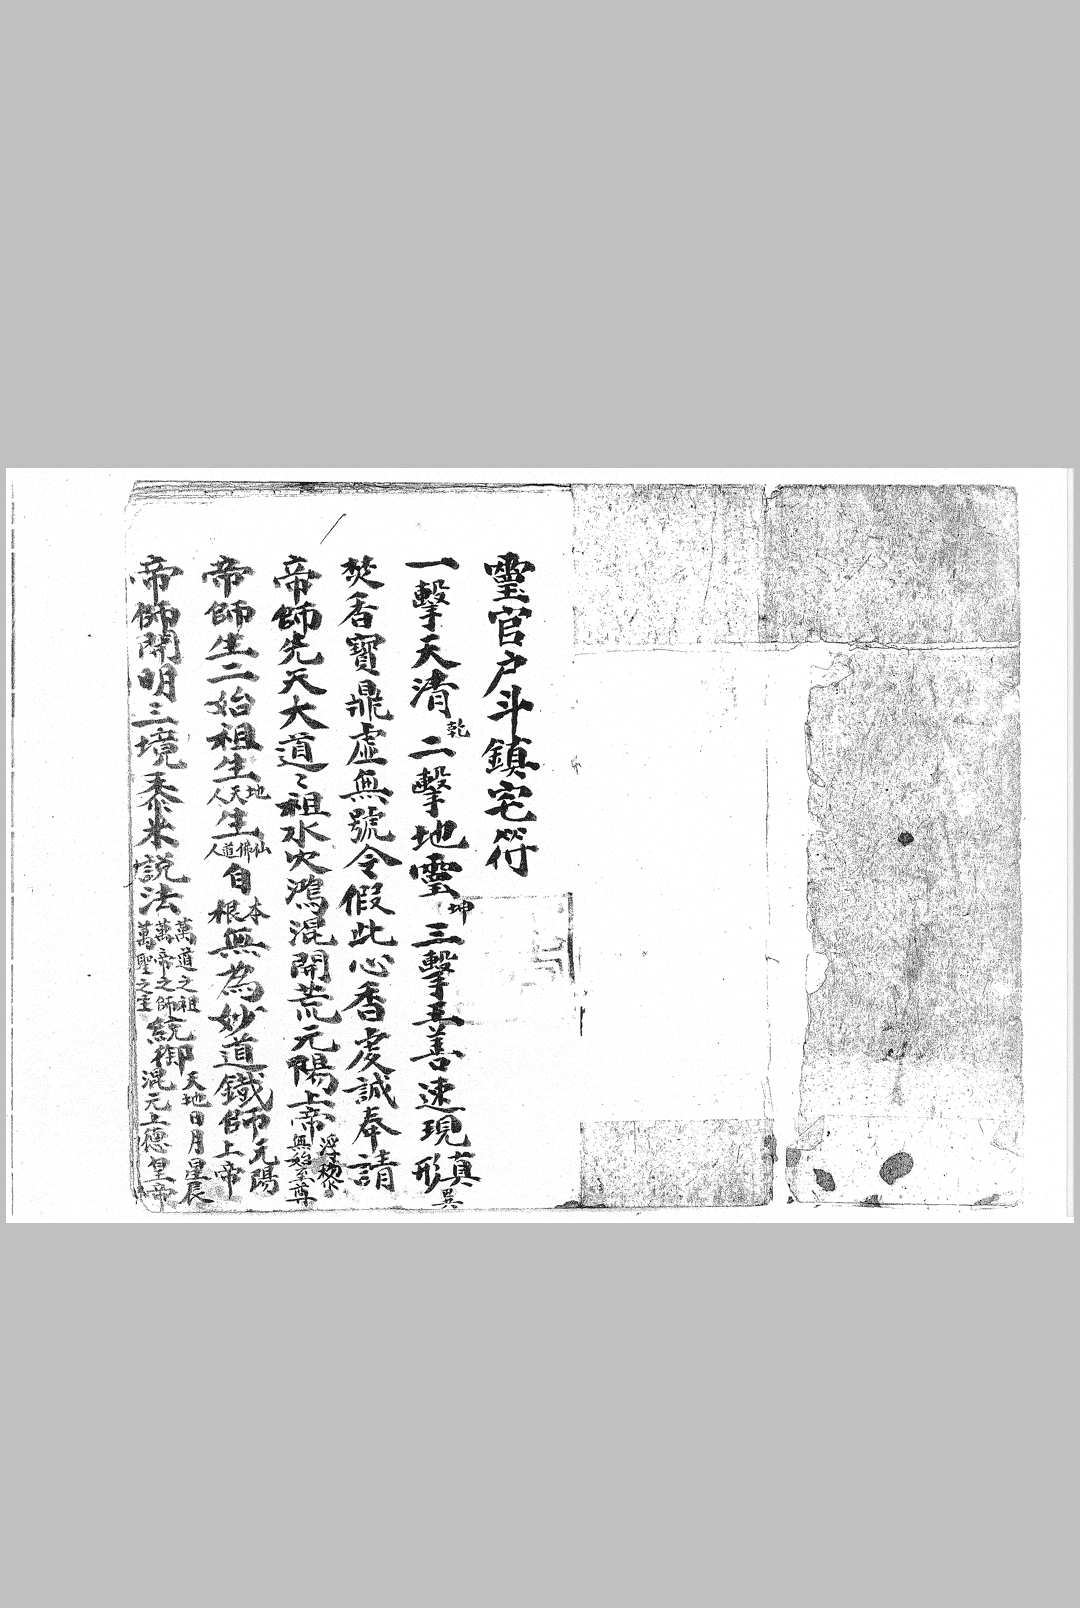 靈官户斗鎮宅符
一擊天清乾二擊地靈坤三擊五善速現真形巽
焚香寶鼎虛無號令假此心香虔誠奉請
帝師先天大道〻祖水穴鴻混開荒元陽上帝浮黎無始至尊
帝師生二始祖生地天人生仙佛道人自本根無為妙道鐵師元陽上帝
帝師開明三境黍米說法萬道之祖萬帝之師萬聖之主統御天地日月星辰混元上德皇帝